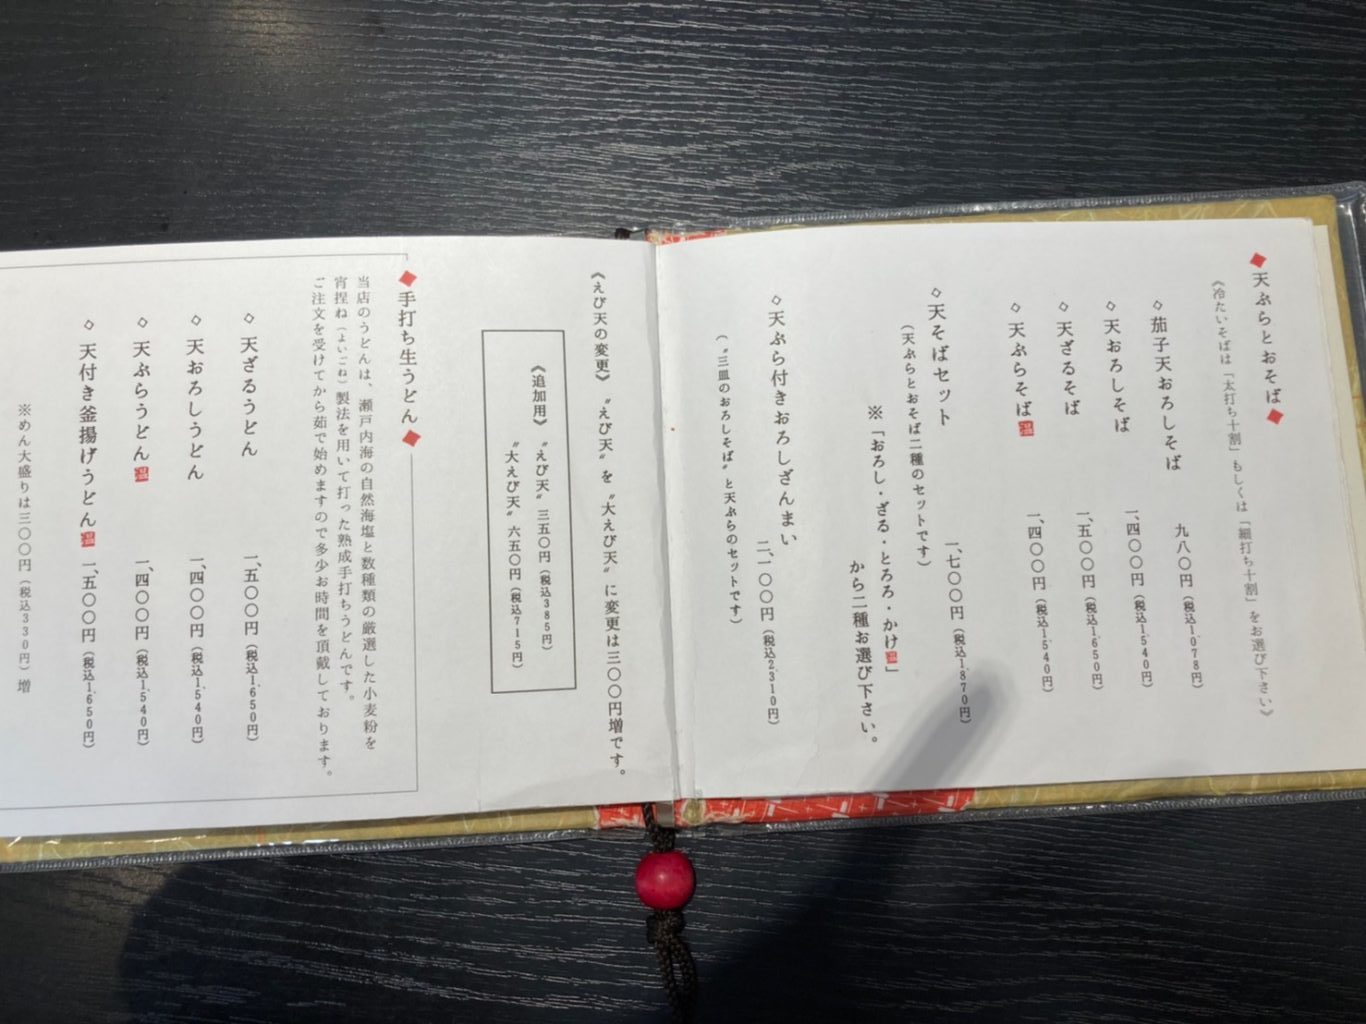 ◆天ぷらとおそば◆
《冷たいそばは「太打ち十割」もしくは「細打ち十割」をお選び下さい》
◇茄子天おろしそば 九八〇円（税込1078円）
◇天おろしそば 一、四〇〇円（税込1,540円）
◇天ざるそば 一、五〇〇円（税込1,650円）
◇天ぷらそば温 一、四〇〇円（税込1,540円）
◇天そばセット 一、七〇〇円（税込1,870円）
（天ぷらとおそば二種のセットです）
※「おろし・ざる・とろろ・かけ温」
から二種お選び下さい。
◇天ぷら付きおろしざんまい 二、一〇〇円（税込2,310円）
（〝三皿のおろしそば〟と天ぷらのセットです）
《えび天の変更》〝えび天〟を〝大えび天〟に変更は三〇〇円増です。
《追加用》〝えび天〟三五〇円（税込385円）
〝大えび天〟六五〇円（税込715円）
◆手打ち生うどん◆
当店のうどんは、瀬戸内海の自然海塩と数種類の厳選した小麦粉を
宵捏ね（よいごね）製法を用いて打った熟成手打ちうどんです。
ご注文を受けてから茹で始めますので多少お時間を頂戴しております。
◇天ざるうどん 一、五〇〇円（税込1,650円）
◇天おろしうどん 一、四〇〇円（税込1,540円）
◇天ぷらうどん温 一、四〇〇円（税込1,540円）
◇天付き釜揚げうどん温 一、五〇〇円（税込1,650円）
※めん大盛りは三〇〇円（税込330円）増